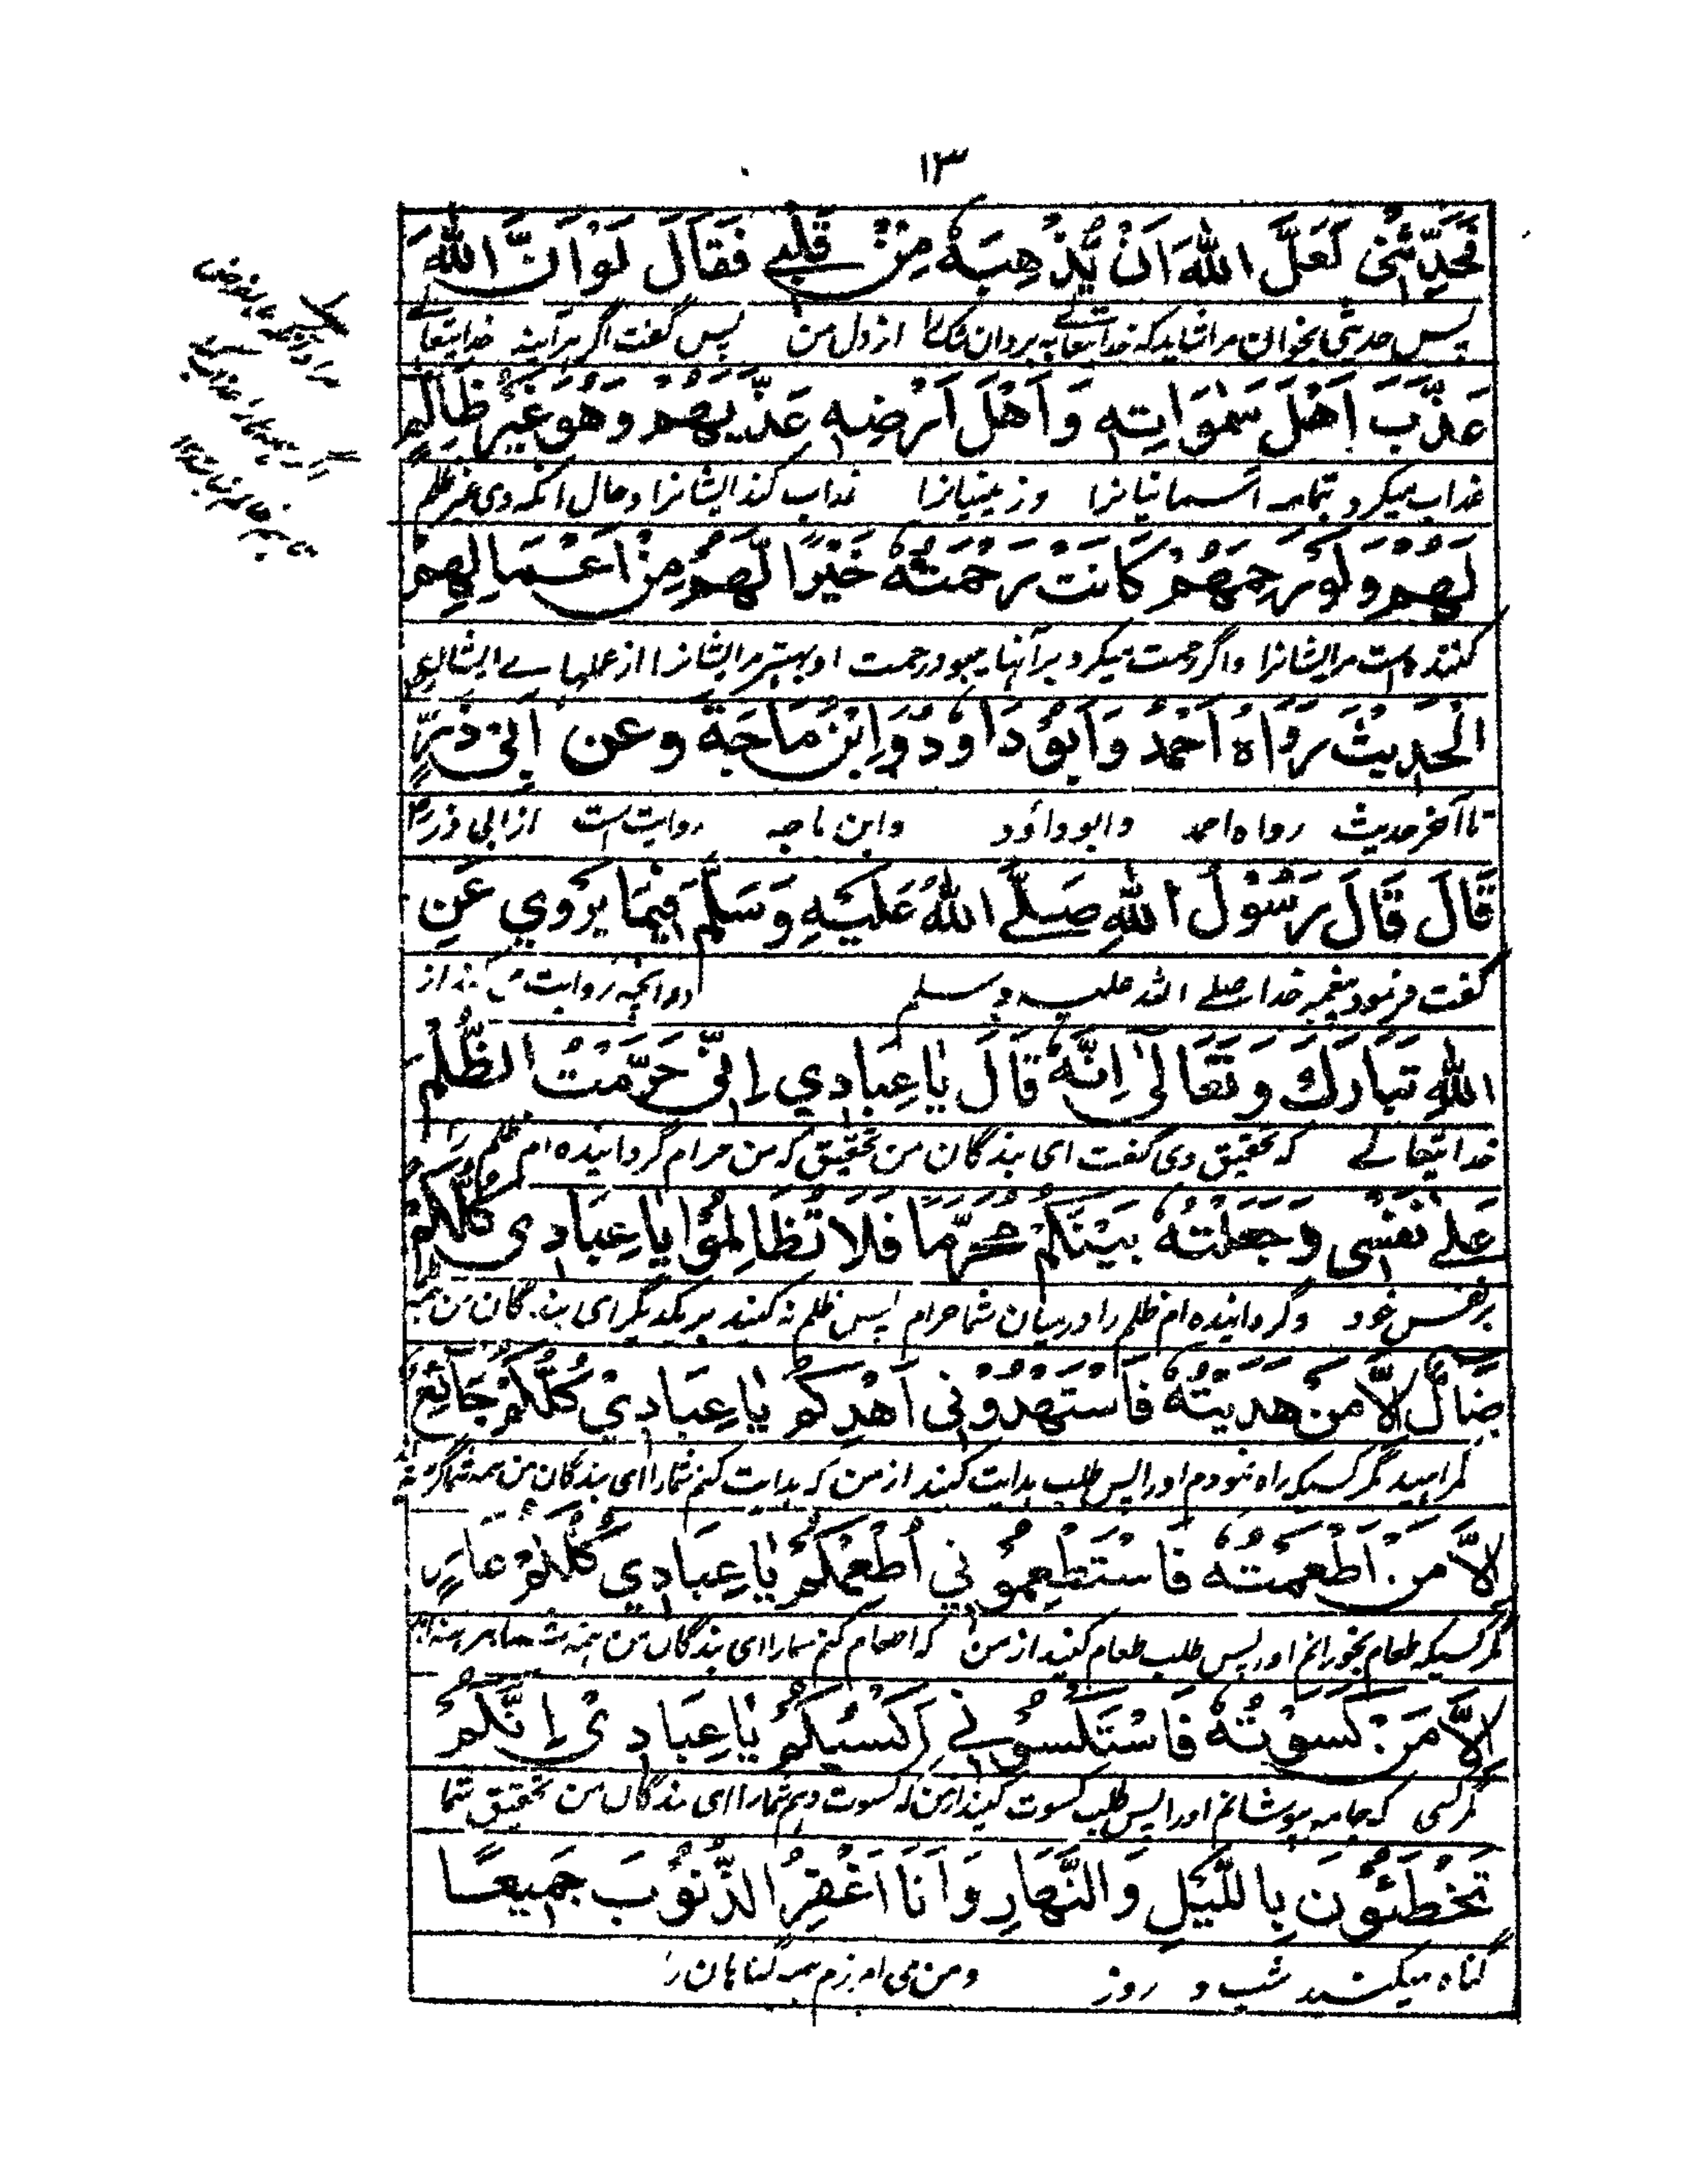 ١٣
فَحَدِّثْنِيْ لَعَلَّ اللّٰهَ اَنْ يُّذْهِبَهٗ مِنْ قَلْبِيْ فَقَالَ لَوْ اَنَّ اللّٰهَ
پس حدیثی بخوان مرا شاید که خدایتعالے به برد آن از دل من پس گفت اگر هرآینه خدایتعالے
عَذَّبَ اَهْلَ سَمٰوَاتِهٖ وَاَهْلَ اَرْضِهٖ عَذَّبَهُمْ وَهُوَ غَيْرُ ظَالِمٍ
عذاب میکرد تمامه آسمانیانرا و زمینیانرا عذاب کند ایشانرا و حال آنکه وی غیر ظلم
لَهُمْ وَلَوْ رَحِمَهُمْ كَانَتْ رَحْمَتُهٗ خَيْرًا لَّهُمْ مِنْ اَعْمَالِهِمْ
کننده است مر ایشانرا و اگر رحمت میکرد بر آنها میبود رحمت او بهتر مر ایشانرا از عملهاے ایشان
الْحَدِيْثَ رَوَاهُ اَحْمَدُ وَاَبُوْ دَاوٗدَ وَابْنُ مَاجَةَ وعن اَبِيْ ذَرٍّ
تا آخر حدیث رواه احمد و ابو داؤد و ابن ماجه روایت است از ابی ذر
قَالَ قَالَ رَسُوْلُ اللّٰهِ صَلَّے اللّٰهُ عَلَيْهِ وَسَلَّمَ فِيْمَا يَرْوِي عَنِ
گفت فرمود پیغمبر خدا صلے الله علیه وسلم در آنچه روایت از
اللّٰهِ تَبَارَكَ وَتَعَالٰى اِنَّهٗ قَالَ يَا عِبَادِي اِنِّيْ حَرَّمْتُ الظُّلْمَ
خدایتعالے که تحقیق وی گفت ای بندگان من تحقیق که من حرام گردانیده ام ظلم را
عَلٰے نَفْسِى وَجَعَلْتُهٗ بَيْنَكُمْ مُحَرَّمًا فَلَا تَظَالَمُوْا يَا عِبَادِي كُلُّكُمْ
بر نفس خود و گردانیده ام ظلم را درمیان شما حرام پس ظلم نه کنید بر یکدیگر ای بندگان من همه
ضَالٌّ اِلَّا مَنْ هَدَيْتُهٗ فَاسْتَهْدُوْنِي اَهْدِكُمْ يَا عِبَادِيْ كُلُّكُمْ جَائِعٌ
گمراهید مگر کسیکه راه نمودم او را پس طلب هدایت کنید از من که هدایت کنم شمارا ای بندگان من همه شما گرسنه
اِلَّا مَنْ اَطْعَمْتُهٗ فَاسْتَطْعِمُوْنِي اُطْعِمْكُمْ يَا عِبَادِي كُلُّكُمْ عَارٍ
مگر کسیکه طعام بخورانم او را پس طلب طعام کنید از من که اطعام کنم شمارا ای بندگان من همه شما برهنه اید
اِلَّا مَنْ كَسَوْتُهٗ فَاسْتَكْسُوْنِي اَكْسُكُمْ يَا عِبَادِيْ اِنَّكُمْ
مگر کسی که جامه بپوشانم او را پس طلب کسوت کنید از من که کسوت دهم شمارا ای بندگان من تحقیق شما
تُخْطِئُوْنَ بِاللَّيْلِ وَالنَّهَارِ وَاَنَا اَغْفِرُ الذُّنُوْبَ جَمِيْعًا
گناه میکنید شب و روز و من می آمرزم همه گناهان را